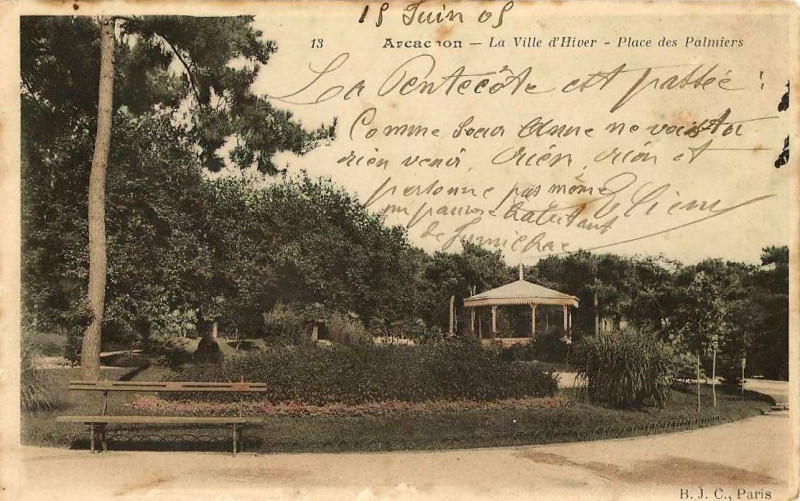 15 Juin 05
13 Arcachon — La Ville d'Hiver - Place des Palmiers
La Pentecôte est passée !
Comme Soeur Anne ne vois tu
rien venir, rien, rien et
personne pas même
un pauvre habitant
de
B. J. C., Paris